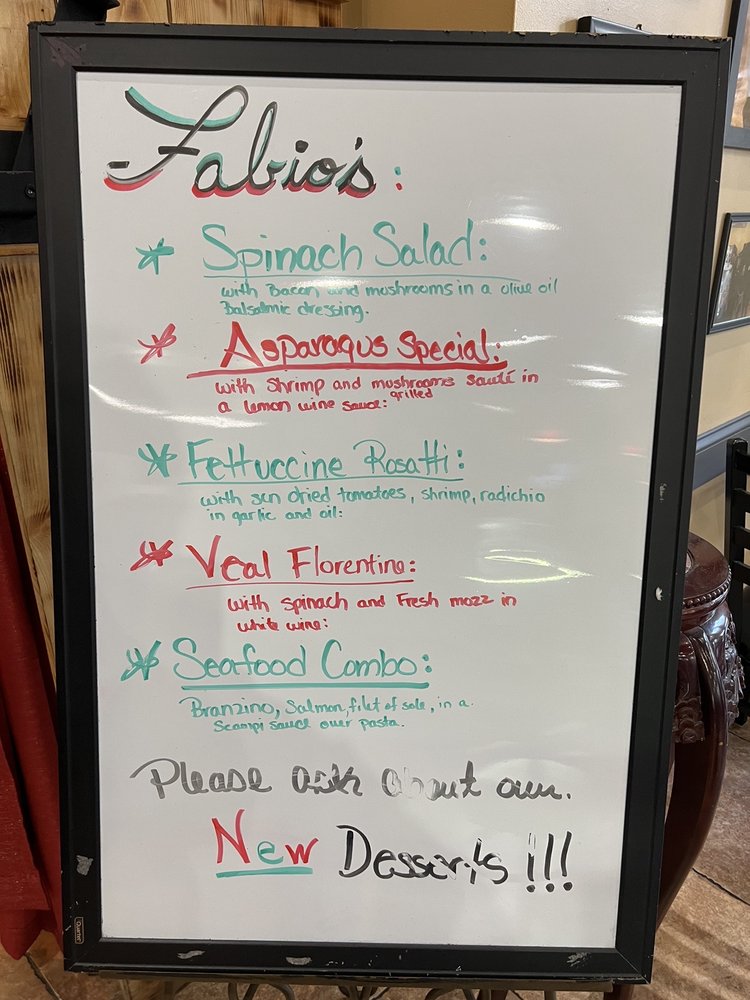 Fabio's:
Spinach Salad:
with Bacon and mushrooms in a olive oil
Balsalmic dressing.
Asparagus Special:
with Shrimp and mushrooms sauté in
a lemon wine sauce: grilled
Fettuccine Rosatti:
with sun dried tomatoes, shrimp, radichio
in garlic and oil:
Veal Florentine:
with spinach and Fresh mozz in
white wine:
Seafood Combo:
Branzino, Salmon, filet of sole, in a
Scampi sauce over pasta.
Please ask about our.
New Desserts !!!
Quartet